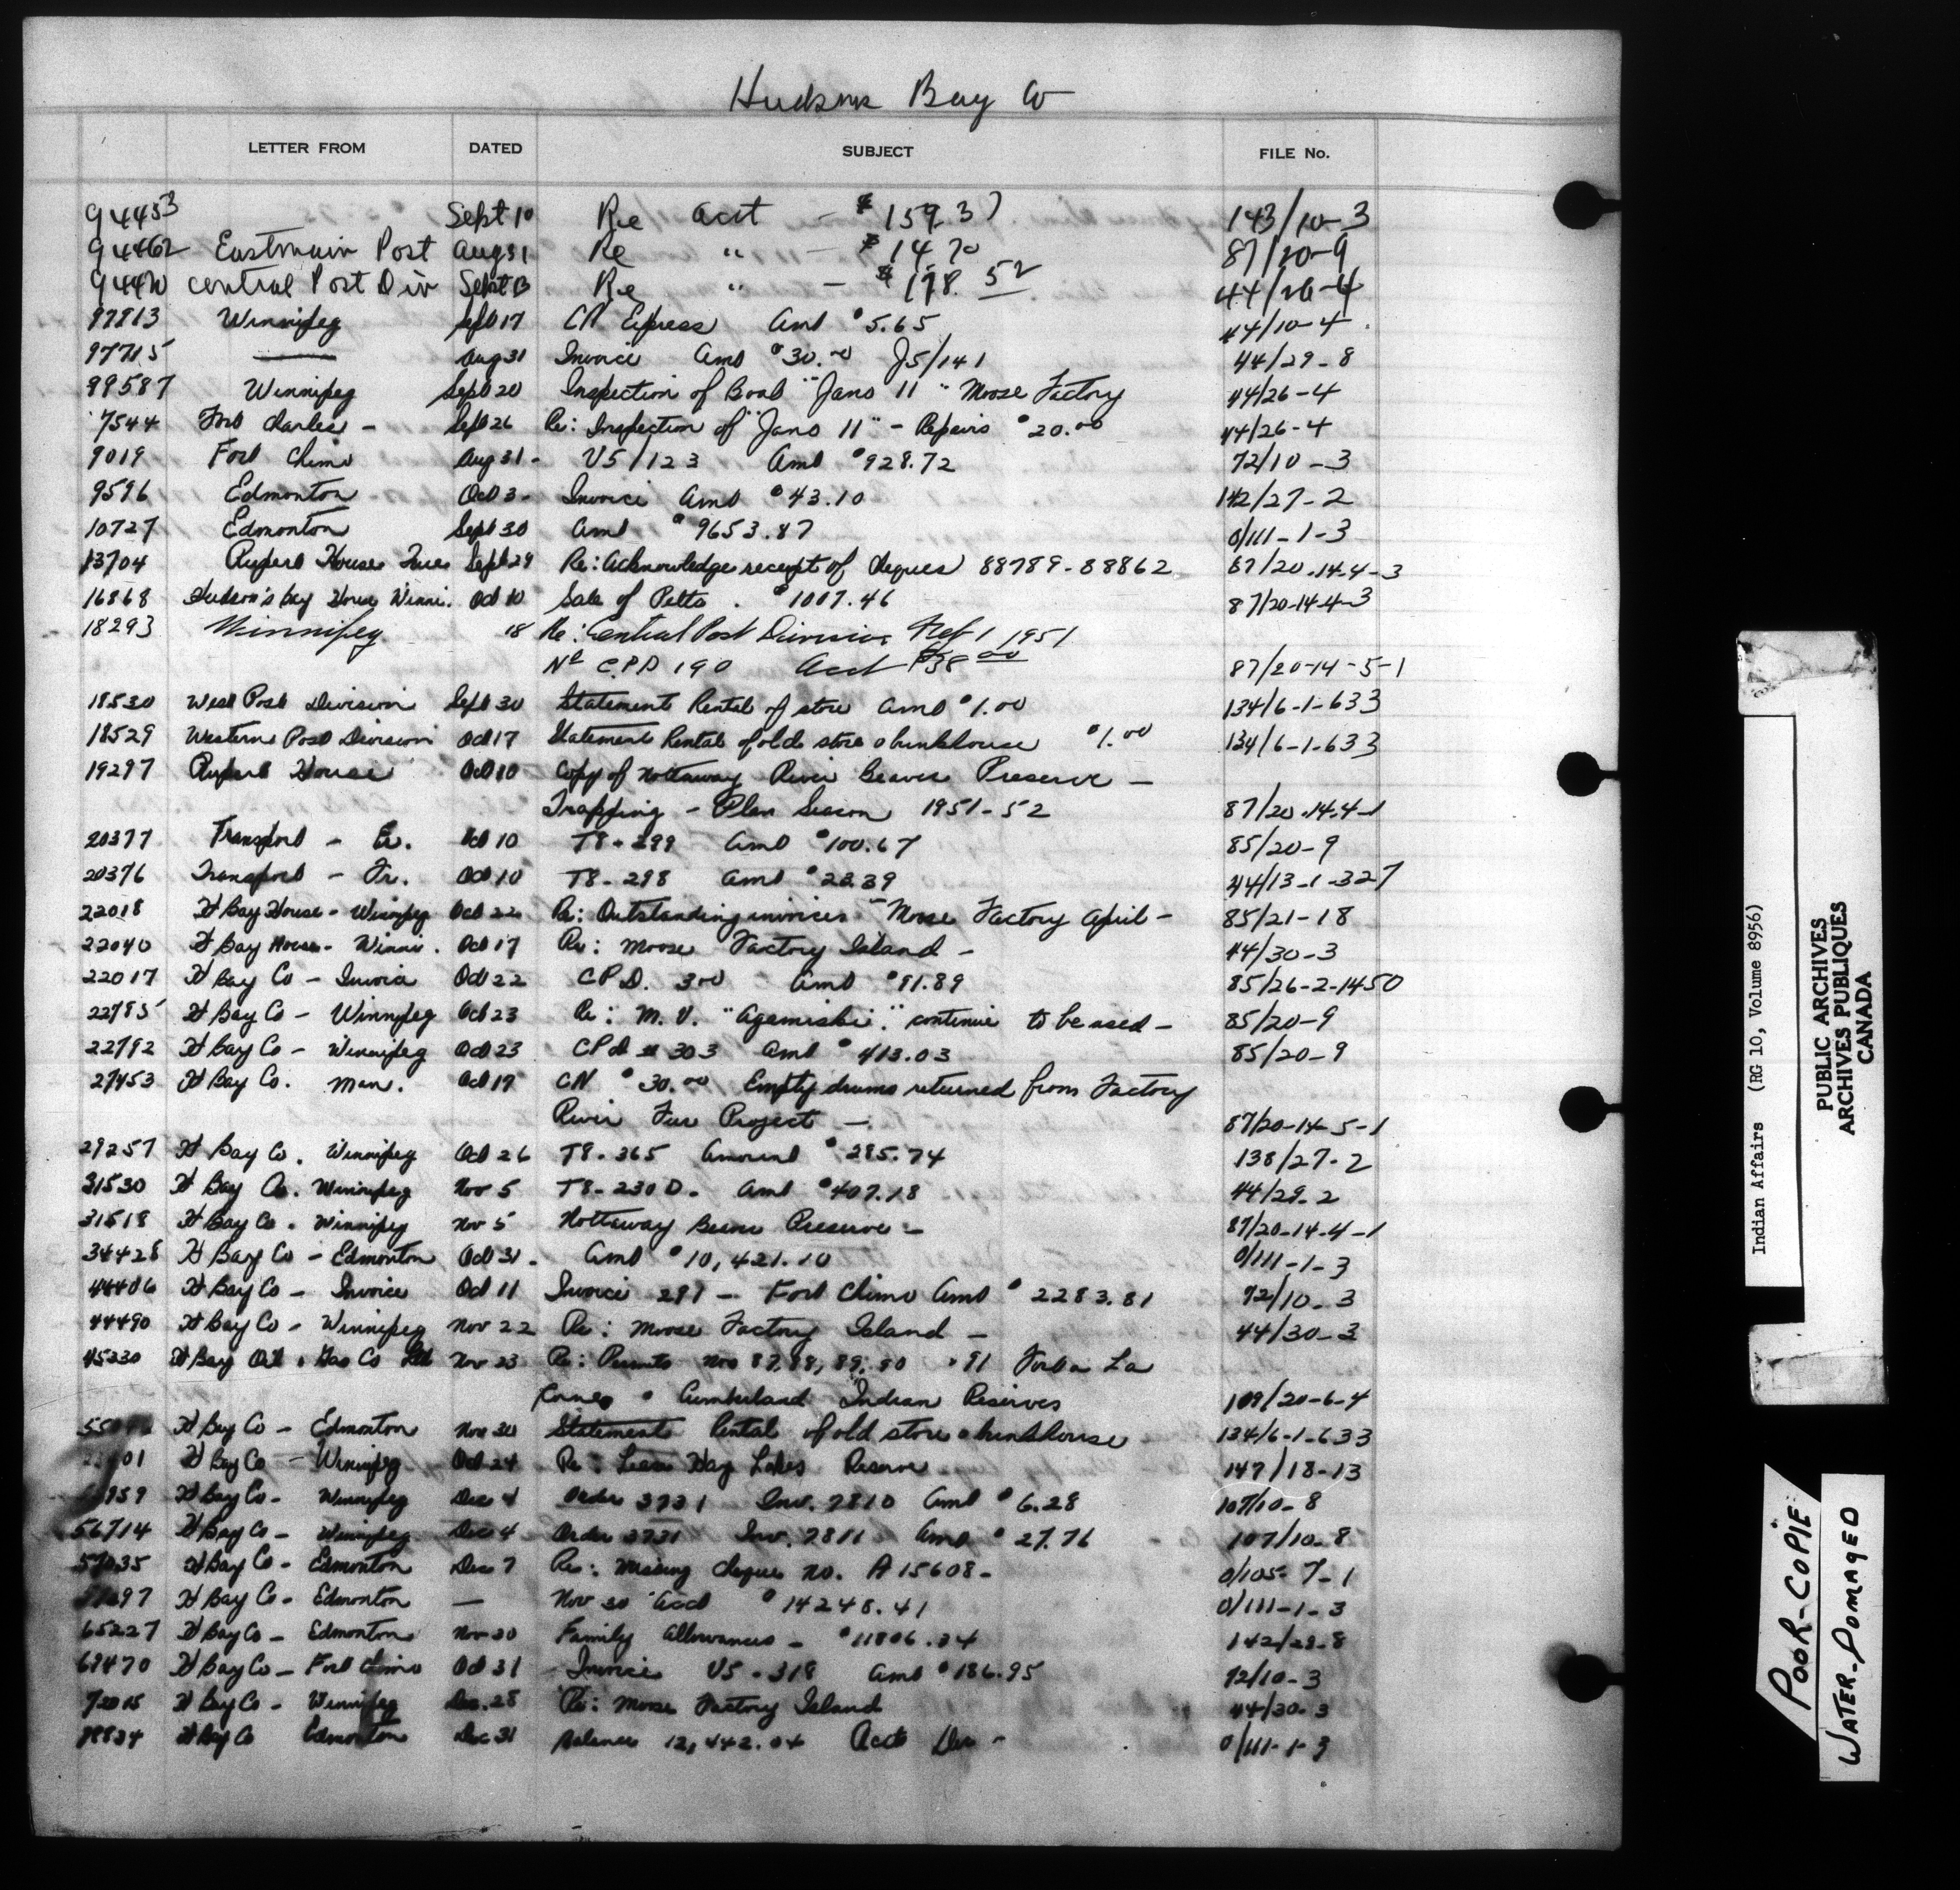 Hudson Bay Co
LETTER FROM DATED SUBJECT FILE No.
94453 Sept 10 Re acct - $159.37 143/10-3
94462 Eastmain Post Aug 31 Re " - $14.70 87/20-9
Central Post Div Sept 13 Re " - $178.52 44/26-4
97813 Winnipeg Sept 17 CN Express Amt $5.65 44/10-4
97715 —— Aug 31 Invoice Amt $30.00 J5/141 44/29-8
99587 Winnipeg Sept 20 Inspection of Boat "Jans 11" Moose Factory 44/26-4
7544 Fort Charles - Sept 26 Re: Inspection of "Jans 11" - Repairs $20.00 44/26-4
9019 Fort Chimo Aug 31 - U5/123 Amt $928.72 72/10-3
9596 Edmonton Oct 3 - Invoice Amt $43.10 142/27-2
10727 Edmonton Sept 30 Amt $9653.87 0/111-1-3
13704 Rupert House Sept 29 Re: Acknowledge receipt of cheques 88789-88862 87/20-14-4-3
16868 Hudson's Bay House Winni. Oct 10 Sale of Pelts. $1007.46 87/20-14-4-3
18293 Winnipeg 18 Re: Central Post Division Ref 1 1951
No C.P.D 190 Acct $38.00 87/20-14-5-1
18530 West Post Division Sept 30 Statement Rental of store Amt $1.00 134/6-1-633
18529 Western Post Division Oct 17 Statement Rental of old store & bunkhouse $1.00 134/6-1-633
19297 Rupert House Oct 10 Copy of Nottaway River Beaver Preserve -
Trapping - Plan Season 1951-52 87/20-14-4-1
20377 Transport - Oct 10 T8-299 Amt $100.67 85/20-9
20376 Transport - Fr. Oct 10 T8-298 Amt $28.39 44/13-1-327
22018 H Bay House - Winnipeg Oct 22 Re: Outstanding invoices - Moose Factory April - 85/21-18
22040 H Bay House - Winni. Oct 17 Re: Moose Factory Island - 44/30-3
22017 H Bay Co - Invoice Oct 22 CPD. 300 Amt $91.89 85/26-2-1450
22785 H Bay Co - Winnipeg Oct 23 Re: M.V. "Agamiski" continue to be used - 85/20-9
22792 H Bay Co - Winnipeg Oct 23 CPD # 303 Amt $413.03 85/20-9
27453 H Bay Co. Man. Oct 17 CN $30.00 Empty drums returned from Factory
River Fur Project - 87/20-14-5-1
29257 H Bay Co. Winnipeg Oct 26 T8-365 Amount $285.74 138/27-2
31530 H Bay Co. Winnipeg Nov 5 T8-230 D. Amt $407.18 44/29-2
31518 H Bay Co. Winnipeg Nov 5 Nottaway Beaver Preserve - 87/20-14-4-1
34428 H Bay Co - Edmonton Oct 31 - Amt $10,421.10 0/111-1-3
44406 H Bay Co - Invoice Oct 11 Invoice 297 - Fort Chimo Amt $2283.81 72/10-3
44490 H Bay Co - Winnipeg Nov 22 Re: Moose Factory Island - 44/30-3
45230 H Bay Oil & Gas Co Ltd Nov 23 Re: Permits Nos 87, 88, 89, 90 & 91 Fort a La
Corne & Cumberland Indian Reserves 109/20-6-4
H Bay Co - Edmonton Nov 30 Statement Rental of old store & bunkhouse 134/6-1-633
H Bay Co - Winnipeg Oct 24 Re: Lease Hay Lakes Reserve 147/18-13
H Bay Co - Winnipeg Dec 4 Order 3731 Inv. 7810 Amt $6.28 107/10-8
56714 H Bay Co - Winnipeg Dec 4 Order 3731 Inv. 7811 Amt $27.76 107/10-8
H Bay Co - Edmonton Dec 7 Re: Missing cheque no. A 15608 - 0/105-7-1
H Bay Co - Edmonton — Nov 30 Acct $14248.41 0/111-1-3
65227 H Bay Co - Edmonton Nov 30 Family Allowances - $11806.34 142/29-8
69470 H Bay Co - Fort Chimo Oct 31 - Invoice U5-318 Amt $186.95 72/10-3
H Bay Co - Winnipeg Dec. 28 Re: Moose Factory Island 44/30-3
H Bay Co Edmonton Dec 31 Balance 12,442.04 Acct Dec - 0/111-1-3
Indian Affairs (RG 10, Volume 8956)
PUBLIC ARCHIVES
ARCHIVES PUBLIQUES
CANADA
POOR-COPIE
WATER-DOMAGED